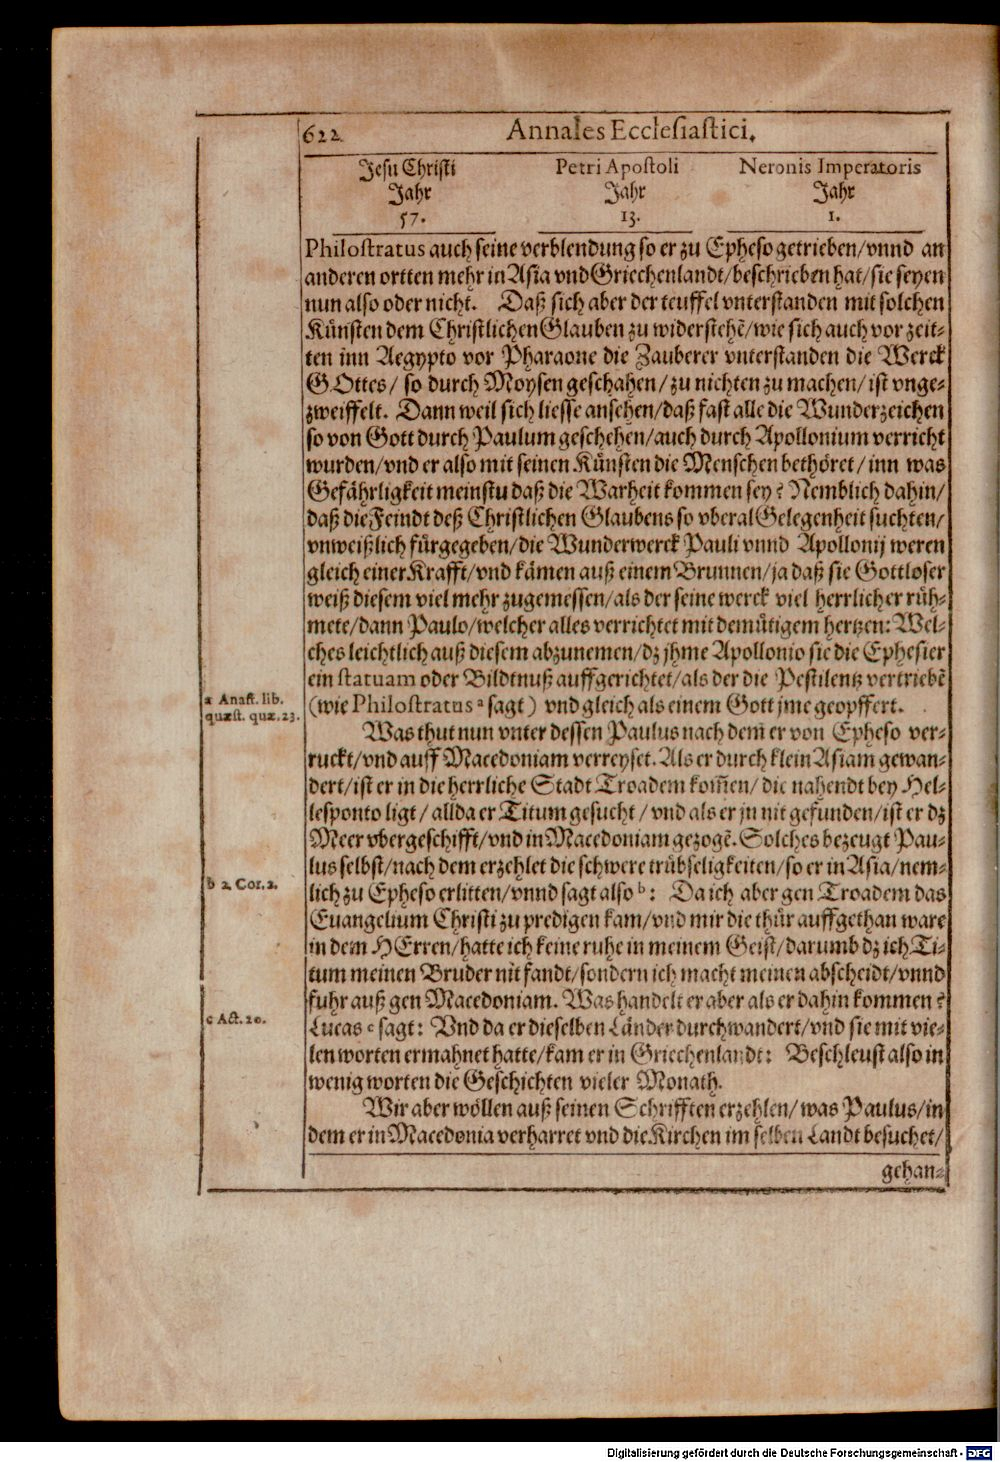 622. Annales Ecclesiastici.
Jesu Christi Petri Apostoli Neronis Imperatoris
Jahr Jahr Jahr
57. 13. 1.
Philostratus auch seine verblendung so er zu Epheso getrieben/vnnd an
anderen ortten mehr in Asia vnd Griechenlandt/beschrieben hat/sie seyen
nun also oder nicht. Daß sich aber der teuffel vnterstanden mit solchen
Künsten dem Christlichen Glauben zu widerstehẽ/wie sich auch vor zeit-
ten inn Aegypto vor Pharaone die Zauberer vnterstanden die Werck
GOttes/ so durch Moysen geschahen/zu nichten zu machen/ist vnge-
zweiffelt. Dann weil sich liesse ansehen/daß fast alle die Wunderzeichen
so von Gott durch Paulum geschehen/auch durch Apollonium verricht
wurden/vnd er also mit seinen Künsten die Menschen bethöret/inn was
Gefährligkeit meinstu daß die Warheit kommen sey? Nemblich dahin/
daß die Feindt deß Christlichen Glaubens so vberal Gelegenheit suchten/
vnweißlich fürgegeben/die Wunderwerck Pauli vnnd Apollonij weren
gleich einer Krafft/vnd kämen auß einem Brunnen/ja daß sie Gottloser
weiß diesem viel mehr zugemessen/als der seine werck viel herrlicher rüh-
mete/dann Paulo/welcher alles verrichtet mit demütigem hertzen: Wel-
ches leichtlich auß diesem abzunemen/dz jhme Apollonio sie die Ephesier
ein statuam oder Bildtnuß auffgerichtet/als der die Pestilentz vertriebẽ
a Anast. lib.
quæst. quæ. 23.
(wie Philostratus a sagt) vnd gleich als einem Gott jme geopffert.
Was thut nun vnter dessen Paulus nach dem er von Epheso ver-
ruckt/vnd auff Macedoniam verreyset. Als er durch klein Asiam gewan-
dert/ist er in die herrliche Stadt Troadem kom̃en/die nahendt bey Hel-
lesponto ligt/allda er Titum gesucht/vnd als er jn nit gefunden/ist er dz
Meer vbergeschifft/vnd in Macedoniam gezogẽ. Solches bezeugt Pau-
lus selbst/nach dem erzehlet die schwere trübseligkeiten/so er in Asia/nem-
b 2. Cor. 2.
lich zu Epheso erlitten/vnnd sagt also b: Da ich aber gen Troadem das
Euangelium Christi zu predigen kam/vnd mir die thür auffgethan ware
in dem HErren/hatte ich keine ruhe in meinem Geist/darumb dz ich Ti-
tum meinen Bruder nit fandt/sondern ich macht meinen abscheidt/vnnd
fuhr auß gen Macedoniam. Was handelt er aber als er dahin kommen?
c Act. 20.
Lucas c sagt: Vnd da er dieselben Länder durchwandert/vnd sie mit vie-
len worten ermahnet hatte/kam er in Griechenlandt: Beschleust also in
wenig worten die Geschichten vieler Monath.
Wir aber wöllen auß seinen Schrifften erzehlen/was Paulus/in
dem er in Macedonia verharret vnd die Kirchen im selben Landt besuchet/
gehan-
Digitalisierung gefördert durch die Deutsche Forschungsgemeinschaft - DFG